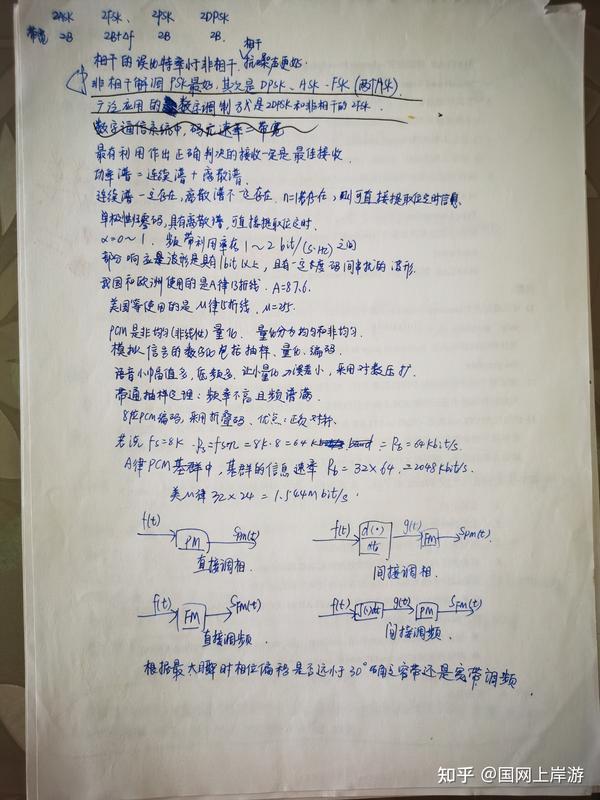 2ASK 2FSK、 2PSK 2DPSK
带宽 2B 2B+Δf 2B 2B.
相干的误比特率小于非相干、相干抗噪声更好.
非相干解调PSK最好,其次是DPSK、ASK、FSK(两个ASK).
广泛应用的数字调制方式是2DPSK和非相干的2FSK.
数字通信系统中,码元速率=带宽
最有利用作出正确判决的接收一定是最佳接收.
功率谱=连续谱+离散谱.
连续谱一定存在,离散谱不一定存在.n=1若存在,则可直接提取位定时信息.
单极性归零码,具有离散谱,可直接提取位定时.
α=0~1.频带利用率在1~2 bit/(s·Hz)之间
部分响应波形是具有1bit以上,且有一定长度码间串扰的波形.
我国和欧洲使用的是A律13折线.A=87.6.
美国等使用的是μ律15折线.μ=255.
PCM是非均匀(非线性)量化.量化分为均匀和非均匀.
模拟信号的数字化包括抽样、量化、编码.
语音小幅值多,低频多.让小量化误差小,采用对数压扩.
带通抽样定理:频率不高且频谱满
8位PCM编码,采用折叠码.优点:正负对称.
若说fs=8K.Rs=fsm=8K·8=64K =Rb=64kbit/s.
A律PCM基群中,基群的信息速率Rb=32×64=2048kbit/s.
美μ律32×24=1.544Mbit/s.
f(t) PM SPM(t) f(t) d(·)/dt g(t) FM SPM(t).
直接调相. 间接调相.
f(t) FM SFM(t) f(t) ∫(·)dt g(t) PM SFM(t)
直接调频. 间接调频.
根据最大瞬时相位偏移是否远小于30°确定窄带还是宽带调频
知乎 @国网上岸游